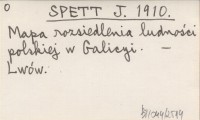 O
SPETT J. 1910.
Mapa rozsiedlenia ludności
polskiej w Galicyi. –
Lwów.